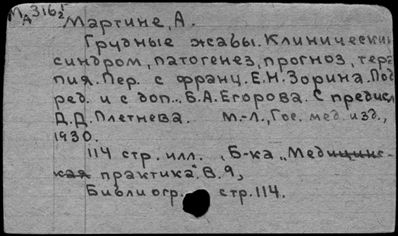 МА 3162
Мартине, А.
Грудные жабы. Клинический
синдром, патогенез, прогноз, тера
пия. Пер. с франц. Е.Н. Зорина. Под
ред. и с доп.. Б.А. Егорова. С предисл
Д.Д. Плетнева. М.-Л., Гос. мед. изд.,
1930.
114 стр. илл. , Б-ка „Медицинс-
кая практика". В. 9,
Библиогр. стр. 114.